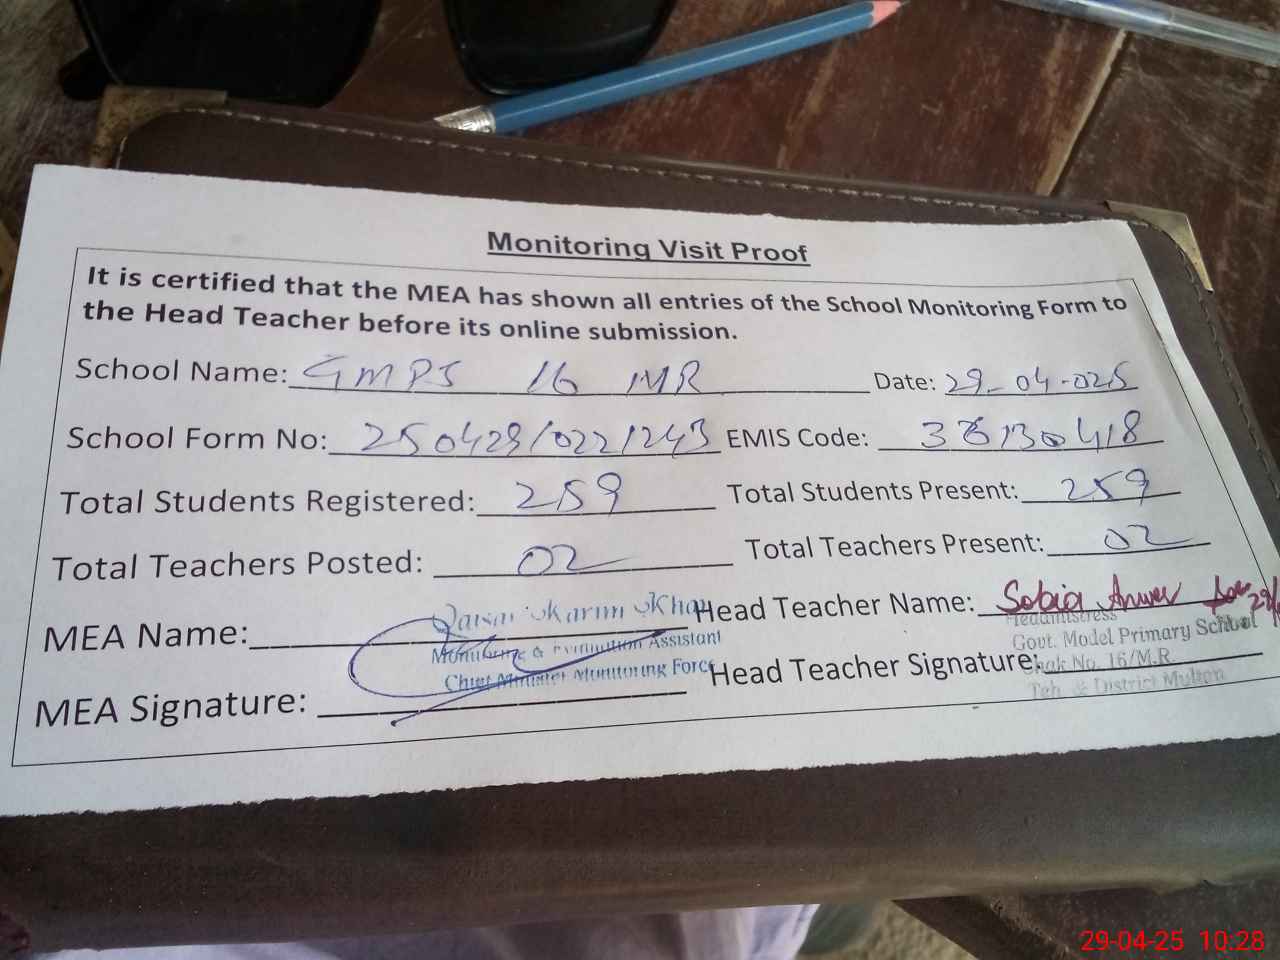 Monitoring Visit Proof
It is certified that the MEA has shown all entries of the School Monitoring Form to
the Head Teacher before its online submission.
School Name: GMPS 16 MR Date: 29-04-025
School Form No: 250429/0221243 EMIS Code: 36130418
Total Students Registered: 259 Total Students Present: 259
Total Teachers Posted: 02 Total Teachers Present: 02
MEA Name: Qaisar Karim Khan Head Teacher Name: Sobia Anwer
Monitoring & Evaluation Assistant
Chief Minister Monitoring Force
MEA Signature: Head Teacher Signature:
Headmistress
Govt. Model Primary School
Chak No. 16/M.R
Teh. & District Multan
29-04-25 10:28